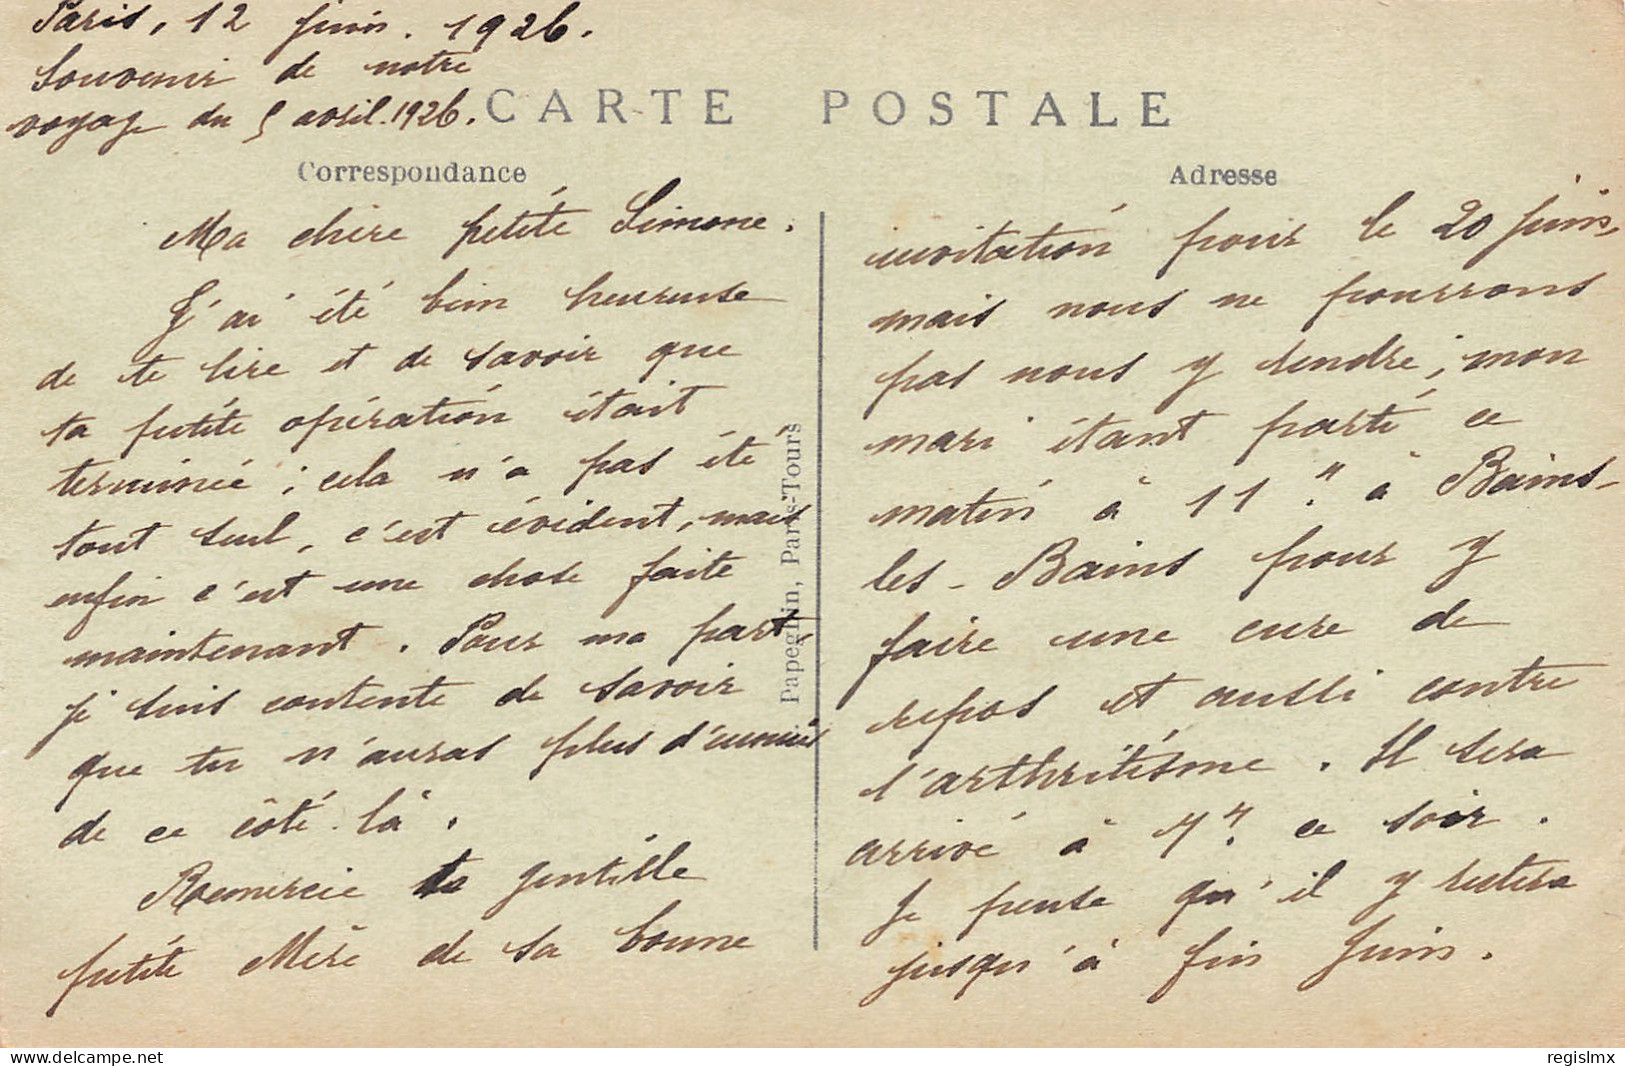 Paris, 12 juin. 1926.
Souvenir de notre
voyage du 5 avril.1926.
CARTE POSTALE
Correspondance
Adresse
Ma chère petite Simone.
J'ai été bien heureuse
de te lire et de savoir que
ta petite opération était
terminée; cela n'a pas été
tout seul, c'est évident, mais
enfin c'est une chose faite
maintenant. Pour ma part
je suis contente de savoir
que tu n'auras plus d'ennuis
de ce côté-là.
Remercie ta gentille
petite Mère de sa bonne
Papeghin, Paris-Tours
invitation pour le 20 juin,
mais nous ne pourrons
pas nous y rendre; mon
mari étant parti ce
matin à 11 h. à Bains-
les-Bains pour y
faire une cure de
repos et aussi contre
l'arthritisme. Il sera
arrivé à 7 h. ce soir.
Je pense qu'il y restera
jusqu'à fin Juin.
delcampe.net
regislmx